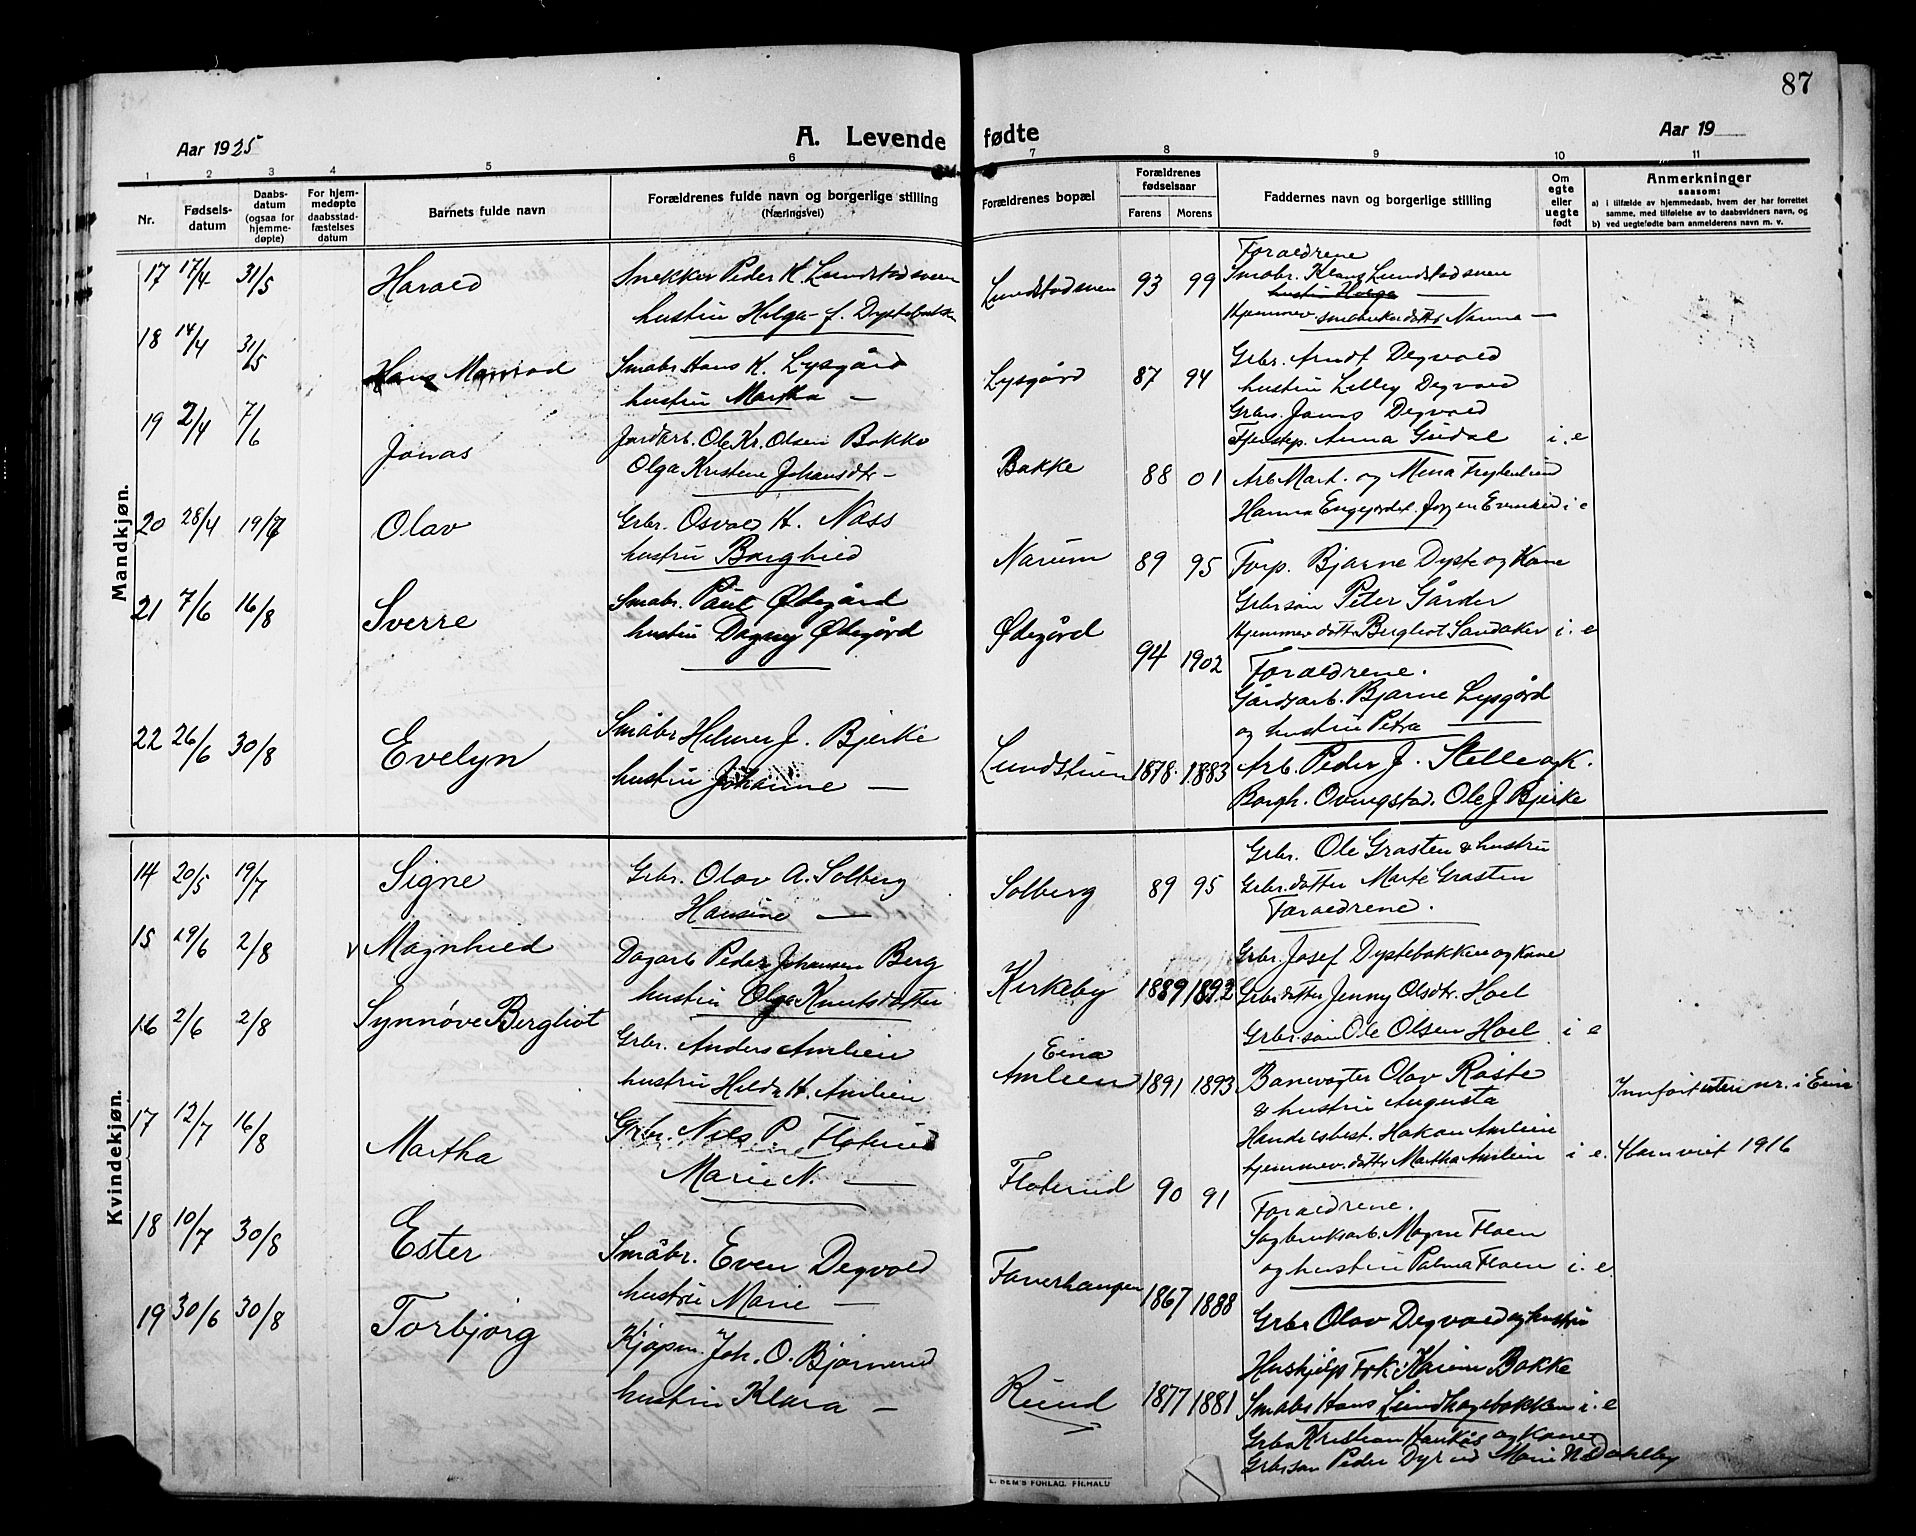 87
Aar 1925
A. Levende fødte
Aar 19
1 2 3 4 5 6 7 8 9 10 11
Nr.
Fødsels-
datum
Daabs-
datum
(ogsaa for
hjemme-
døpte)
For hjem-
medøpte
daabsstad-
fæstelses
datum
Barnets fulde navn
Forældrenes fulde navn og borgerlige stilling
(Næringsvei)
Forældrenes bopæl
Forældrenes
fødselsaar
Farens
Morens
Faddernes navn og borgerlige stilling
Om
egte
eller
uegte
født
Anmerkninger
saasom:
a) i tilfælde av hjemmedaab, hvem der har forrettet
samme, med tilføielse av to daabsvidners navn, og
b) ved uegtefødte barn anmelderens navn m. v.
Mandkjøn.
17 17/4 31/5 Harald
Snekker Peder K. Lundstadsveen
hustru Helga f. Dystebakken
Lundstadsveen 93 99
Foraeldrene
Smabr. Klaus Lundstadsveen
hustru Helga
Hjemmev. smabrukerdatter Nanna —
18 14/4 31/5 Hans Manrad
Smabr. Hans K. Lysgård
hustru Martha —
Lysgård 87 94
Grbr. Arndt Degvold
hustru Lilley Degvold
Grbrs. Jams Degvold
Tjenstep. Anna Gudal i. e
19 2/4 7/6 Jonas
Jordarb. Ole Kr. Olsen Bakke
Olga Kristine Johansdtr —
Bakke 88 01
Arb Mart. og Mina
Hanna Engejordet. Jørgen i e
20 28/4 19/7 Olav
Grbr. Osvald H. Næss
hustru Borghild
Narum 89 95
Forp. Bjarne Dyste og Kone
Grbrsøn Peter Gårder
Hjemmev datter Bergliot Sandaker i. e
21 7/6 16/8 Sverre
Smabr. Paul Ødegård
hustru Dagny Ødegård
Ødegård 94 1902
Foraeldrene.
Gårdsarb. Bjarne Lysgård
og hustru Petra —
22 26/6 30/8 Evelyn
Småbr Helmer J. Bjerke
hustru Johanne —
Lundstuen 1878. 1883
Arb. Peder J. Stelle og K.
Borgh. Ovingstad. Ole J Bjerke
Kvindekjøn.
14 20/5 19/7 Signe
Grbr. Olav A. Solberg
Hansine —
Solberg 89 95
Grbr. Ole Grasten & hustru
Grbr. datter Marte Grasten
Foraeldrene.
15 29/6 2/8 v Magnhild
Dagarb Peder Johansen Berg
hustru Olga Knutsdatter
Kirkeby 1889 1892
Grbr. Josef Dystebakken og kone
Grbr datter Jenny Olsdtr. Hoel
Grbr. søn Ole Olsen Hoel. i e
16 2/6 2/8 Synnøve Bergliot
Grbr. Anders Amlien
hustru Hilda H. Amlien
Eina
Amlien 1891 1893
Banevogter Olav Røste
& hustru Augusta
Handelsbest. Hakon Amlien
hjemmev. datter Martha Amlien i e.
Innført uten nr. i Eina
17 12/7 16/8 Martha
Grbr. Nils P. Floterud
Marie N. —
Floterud 90 91
Foraeldrene.
Sagbruksarb. Magne Floen
og hustru Palma Floen i. e.
viet 1916
18 10/7 30/8 Ester
Småbr. Even Degvold
hustru Marie —
Faverhaugen 1867 1888
Grbr Olav Degvold og hustru
Hushjelp Frk. Karen Bakke
Smabr Hans Lundhagebakken i. e
19 30/6 30/8 Torbjørg
Kjøpm. Joh. O. Bjørnerud
hustru Klara —
Ruud 1877 1881
Grbr Kristian Haukås og Kone
Grbrsøn Peder Dyrud Marie N. Dahlby